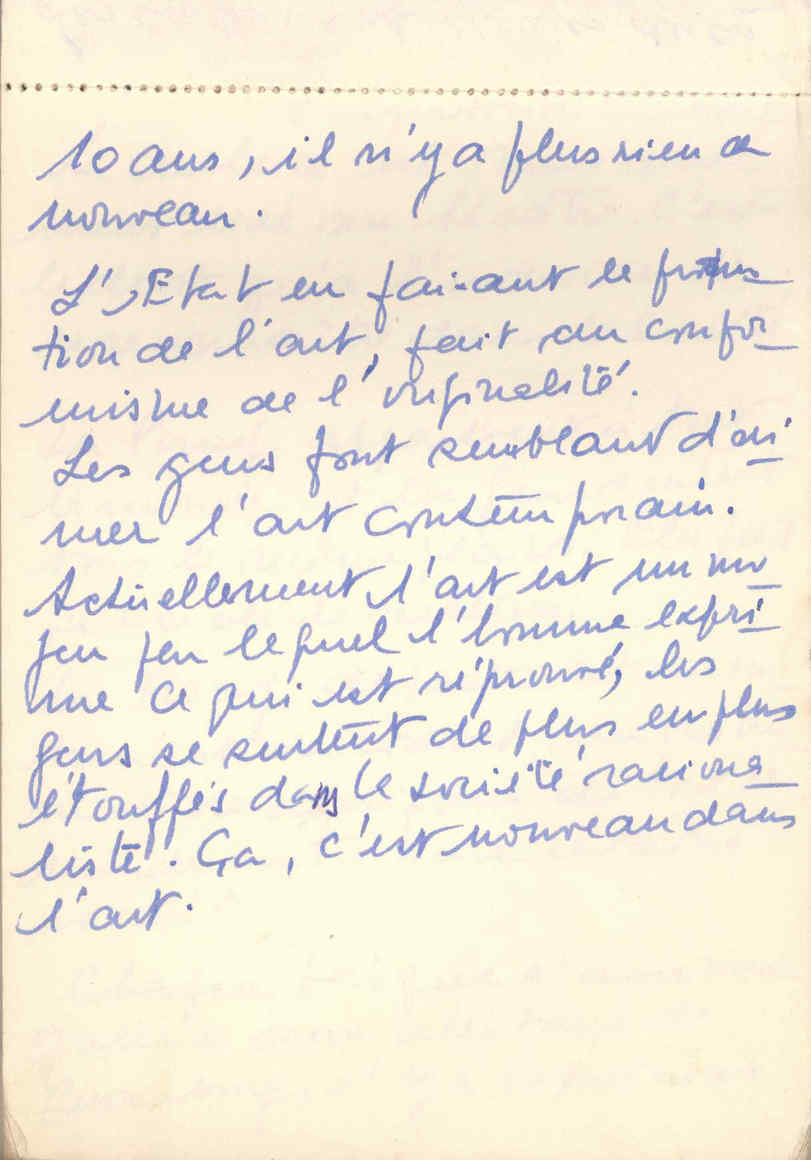 10 ans, il n'y a plus rien de
nouveau.
L'Etat en faisant le
tion de l'art, fait du confor
misme de l'originalité.
Les gens font semblant d'ai
mer l'art contemporain.
Actuellement l'art est un mo
yen par lequel l'homme expri
me ce qui est réprouvé, les
gens se sentent de plus en plus
étouffés dans la société rationa
liste. Ça, c'est nouveau dans
l'art.